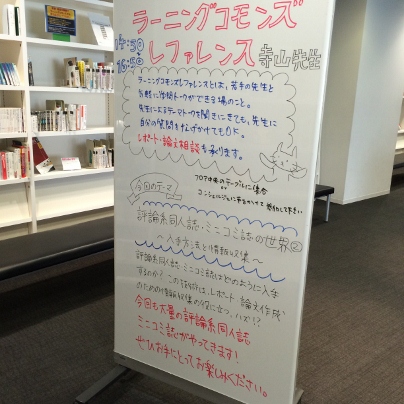 ラーニングコモンズ
レファレンス 寺山先生
ラーニングコモンズレファレンスとは、若手の先生と
気軽に学問トークができる場のこと。
先生によるテーマトークを聞きにきても、先生に
自分の質問をなげかけてもOK。
レポート・論文相談も承ります。
フロア中央のテーブルに集合
or
コンシェルジュに声をかけて参加して下さい
今回のテーマ
評論系同人誌・ミニコミ誌の世界②
〜入手方法と情報収集〜
評論系同人誌・ミニコミ誌はどのように入手
するのか? この技術は、レポート・論文作成
のための情報収集の役に立つ、ハズ!?
今回も大量の評論系同人誌
ミニコミ誌がやってきます!
ぜひお手にとってお楽しみください。